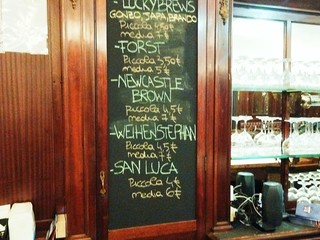 -LUCKYBREWS
GONZO, JAPA, BRANDO
Piccola 4,50€
media 7€
-FORST
Piccola 3,50€
media 5€
-NEWCASTLE
BROWN
piccola 4,5€
media 7€
-WEIHENSTEPHAN
Piccola 4,5€
media 7€
-SAN LUCA
Piccola 4€
media 6€